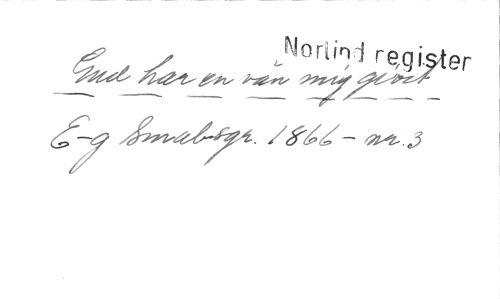 Norlind register
Gud har en vän mig givit
E-g Smålsgr. 1866 - nr. 3